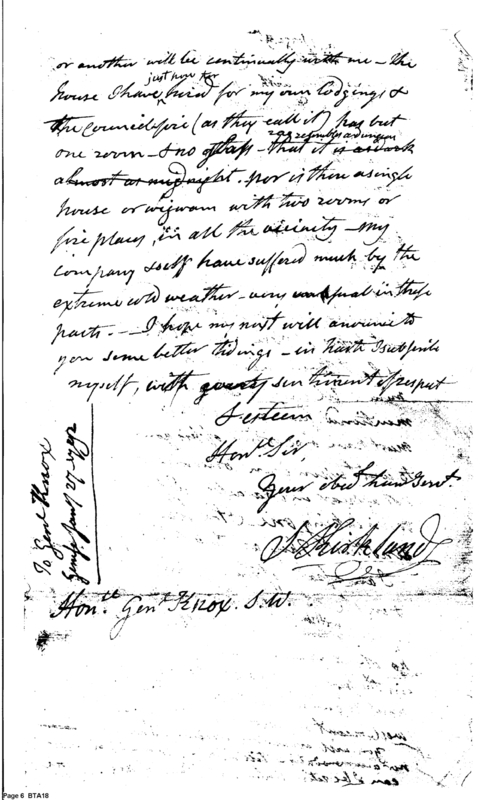 or another will be continually with me – the
just now for
house I have hired for my own lodgings &
the councilfire (as they call it) has but
so as resembles a dungeon
one room – & no glass – that it is as dark
almost as midnight. Nor is there a single
house or wigwam with two rooms or
fire places, in all the vicinity – My
company & self have suffered much by the
extreme cold weather – very unusual in these
parts. – I hope my next will announce to
you some better tidings – in haste I subscribe
myself, with sentiment of respect
& esteem
Hond. Sir,
Your obedt. hum Servt.
S Kirkland
Honll. Genl Knox. S.W.
To Genl Knox
Page 6 BTA18